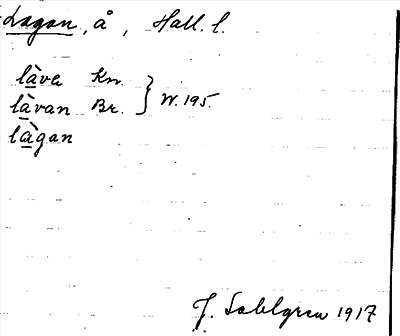 Lagan, å, Hall. l.
làva Kn.
làvan Br. } W. 195.
làgan
J. Sahlgren 1917